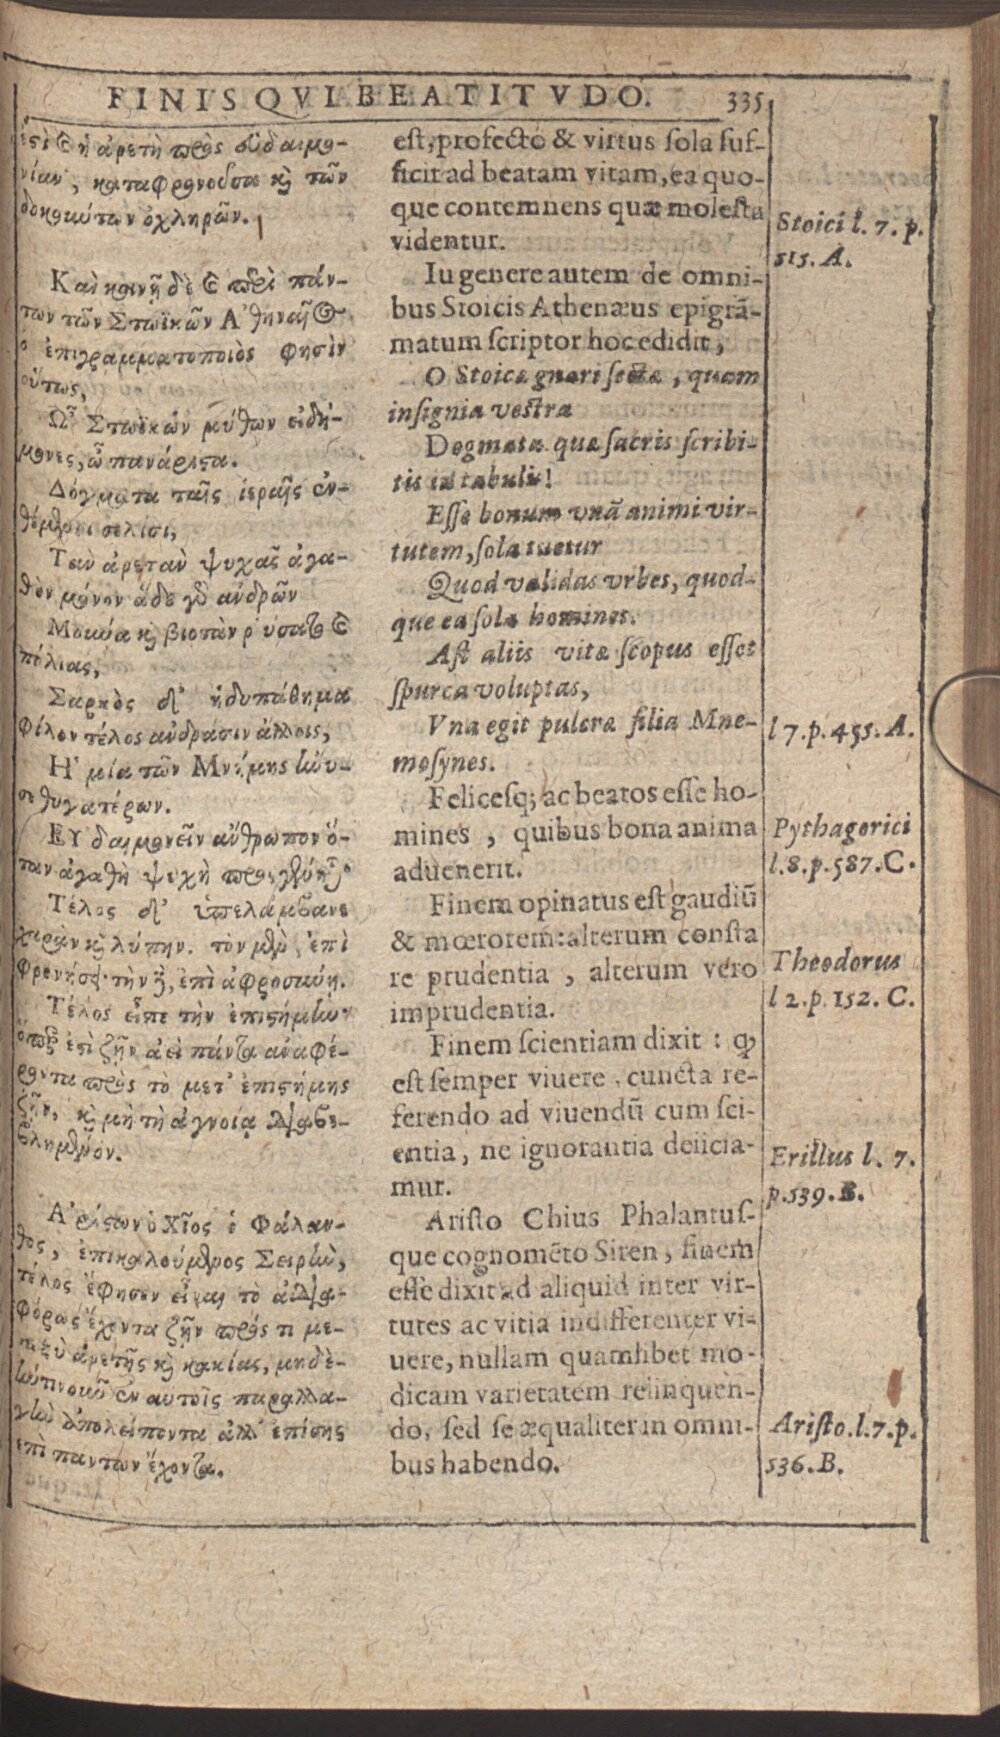 FINIS QVI BEATITVDO. 335
ἐςὶ καὶ ἡ ἀρετὴ πρὸς εὐδαιμο-
νίαν, καταφρονοῦσα καὶ τῶν
δοκούντων ὀχληρῶν.
Καὶ κοινῇ δὲ καὶ περὶ πάν-
των τῶν Στωϊκῶν Ἀθηναῖος
ὁ ἐπιγραμματοποιὸς φησὶν
οὕτως,
Ὦ Στωϊκῶν μύθων εἰδή-
μονες, ὦ πανάριςα.
Δόγματα ταῖς ἱεραῖς ἐν-
θέμενοι σελίσι,
Τὰν ἀρετὰν ψυχᾶς ἀγα-
θὸν μόνον ἅδε γὰρ ἀνδρῶν
Μούνα καὶ βιοτὰν ῥύσατο καὶ
πόλιας,
Σαρκὸς δ' ἡδυπάθημα
φίλον τέλος ἀνδράσιν ἄλλοις,
Ἡ μία τῶν Μνήμης ἤνυ-
σε θυγατέρων.
Εὐδαιμονεῖν ἄνθρωπον ὅ-
ταν ἀγαθὴ ψυχὴ προσγένηται
Τέλος δ' ὑπελάμβανε
χαρὰν καὶ λύπην. τὸν μὲν, ἐπὶ
φρονήσει· τὴν δὲ, ἐπὶ ἀφροσύνῃ.
Τέλος εἶπε τὴν ἐπιςήμην
ὅπερ ἐςὶ ζῆν ἀεὶ πάντα ἀναφέ-
ροντα πρὸς τὸ μετ' ἐπιςήμης
ζῆν, καὶ μὴ τῇ ἀγνοίᾳ διαβε-
βλημένον.
Ἀρίςων ὁ Χῖος ὁ Φάλαν-
θος, ἐπικαλούμενος Σειρὴν,
τέλος ἔφησεν εἶναι τὸ ἀδιαφό-
φόρως ἔχοντα ζῆν πρὸς τι με-
ταξὺ ἀρετῆς καὶ κακίας, μηδὲ-
ἡντινοῦν ἐν αὐτοῖς παραλλα-
γὴν ἀπολείποντα ἀλλ' ἐπίσης
ἐπὶ πάντων ἔχοντα.
est, profectò & virtus sola suf-
ficit ad beatam vitam, ea quo-
que contemnens quæ molesta
videntur.
Iu genere autem de omni-
bus Stoicis Athenæus epigrā-
matum scriptor hoc edidit,
O Stoicæ gnari sectæ, quam
insignia vestra
Dogmata quæ sacris scribi-
tis in tabulis!
Esse bonum vnā animi vir-
tutem, sola tuetur
Quod validas vrbes, quod-
que ea sola homines.
Ast aliis vitæ scopus esset
spurca voluptas,
Vna egit pulcra filia Mne-
mosynes.
Felicesq; ac beatos esse ho-
mines, quibus bona anima
aduenerit.
Finem opinatus est gaudiū
& mœrorem: alterum consta
re prudentia, alterum vero
imprudentia.
Finem scientiam dixit: ꝙ
est semper viuere, cuncta re-
ferendo ad viuendū cum sci-
entia, ne ignorantia deiicia-
mur.
Aristo Chius Phalantus-
que cognomēto Siren, finem
esse dixit ad aliquid inter vir-
tutes ac vitia indifferenter vi-
uere, nullam quamlibet mo-
dicam varietatem relinquen-
do, sed se æqualiter in omni-
bus habendo.
Stoici l. 7. p.
515. A.
l 7. p. 455. A.
Pythagorici
l. 8. p. 587. C.
Theodorus
l 2. p. 152. C.
Erillus l. 7.
p. 539. B.
Aristo. l. 7. p.
536. B.